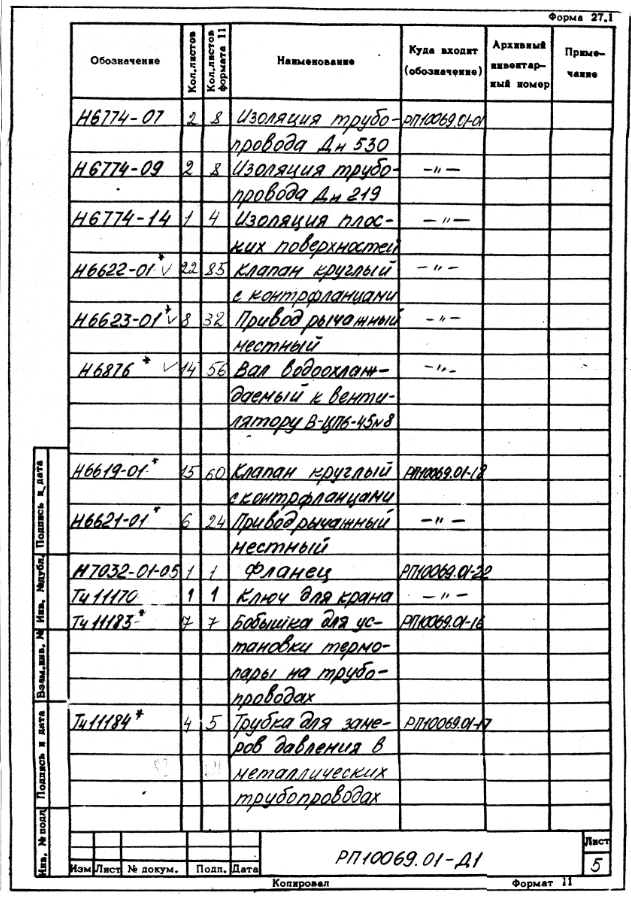 Форма 27.1
Обозначение Кол.листов Кол.листов формата 11 Наименование Куда входит (обозначение) Архивный инвентарный номер Примечание
Н6774-07 2 8 Изоляция трубо- РП10069.01-01
провода Дн 530
Н6774-09 2 8 Изоляция трубо- —〃—
провода Дн 219
Н6774-14 1 4 Изоляция плос- —〃—
ких поверхностей
Н6622-01* √ 22 85 Клапан круглый —〃—
с контрфланцами
Н6623-01* √ 8 32 Привод рычажный —〃—
местный
Н6876 * √ 14 56 Вал водоохлаж- —〃—
даемый к венти-
лятору В-ЦП6-45№8
Н6619-01* 15 60 Клапан круглый РП10069.01-18
с контрфланцами
Н6621-01* 6 24 Привод рычажный —〃—
местный
Н7032-01-05 1 1 Фланец РП10069.01-22
Тч11170 1 1 Ключ для крана —〃—
Тч11183* 7 7 Бобышка для ус- РП10069.01-16
тановки термо-
пары на трубо-
проводах
Тч11184* 4 5 Трубка для заме- РП10069.01-17
ров давления в
металлических
трубопроводах
Инв. № подл. Подпись и дата Взам.инв. № Инв. №дубл. Подпись и дата
РП10069.01-Д1
Лист
5
Изм Лист № докум. Подп. Дата
Копировал Формат 11